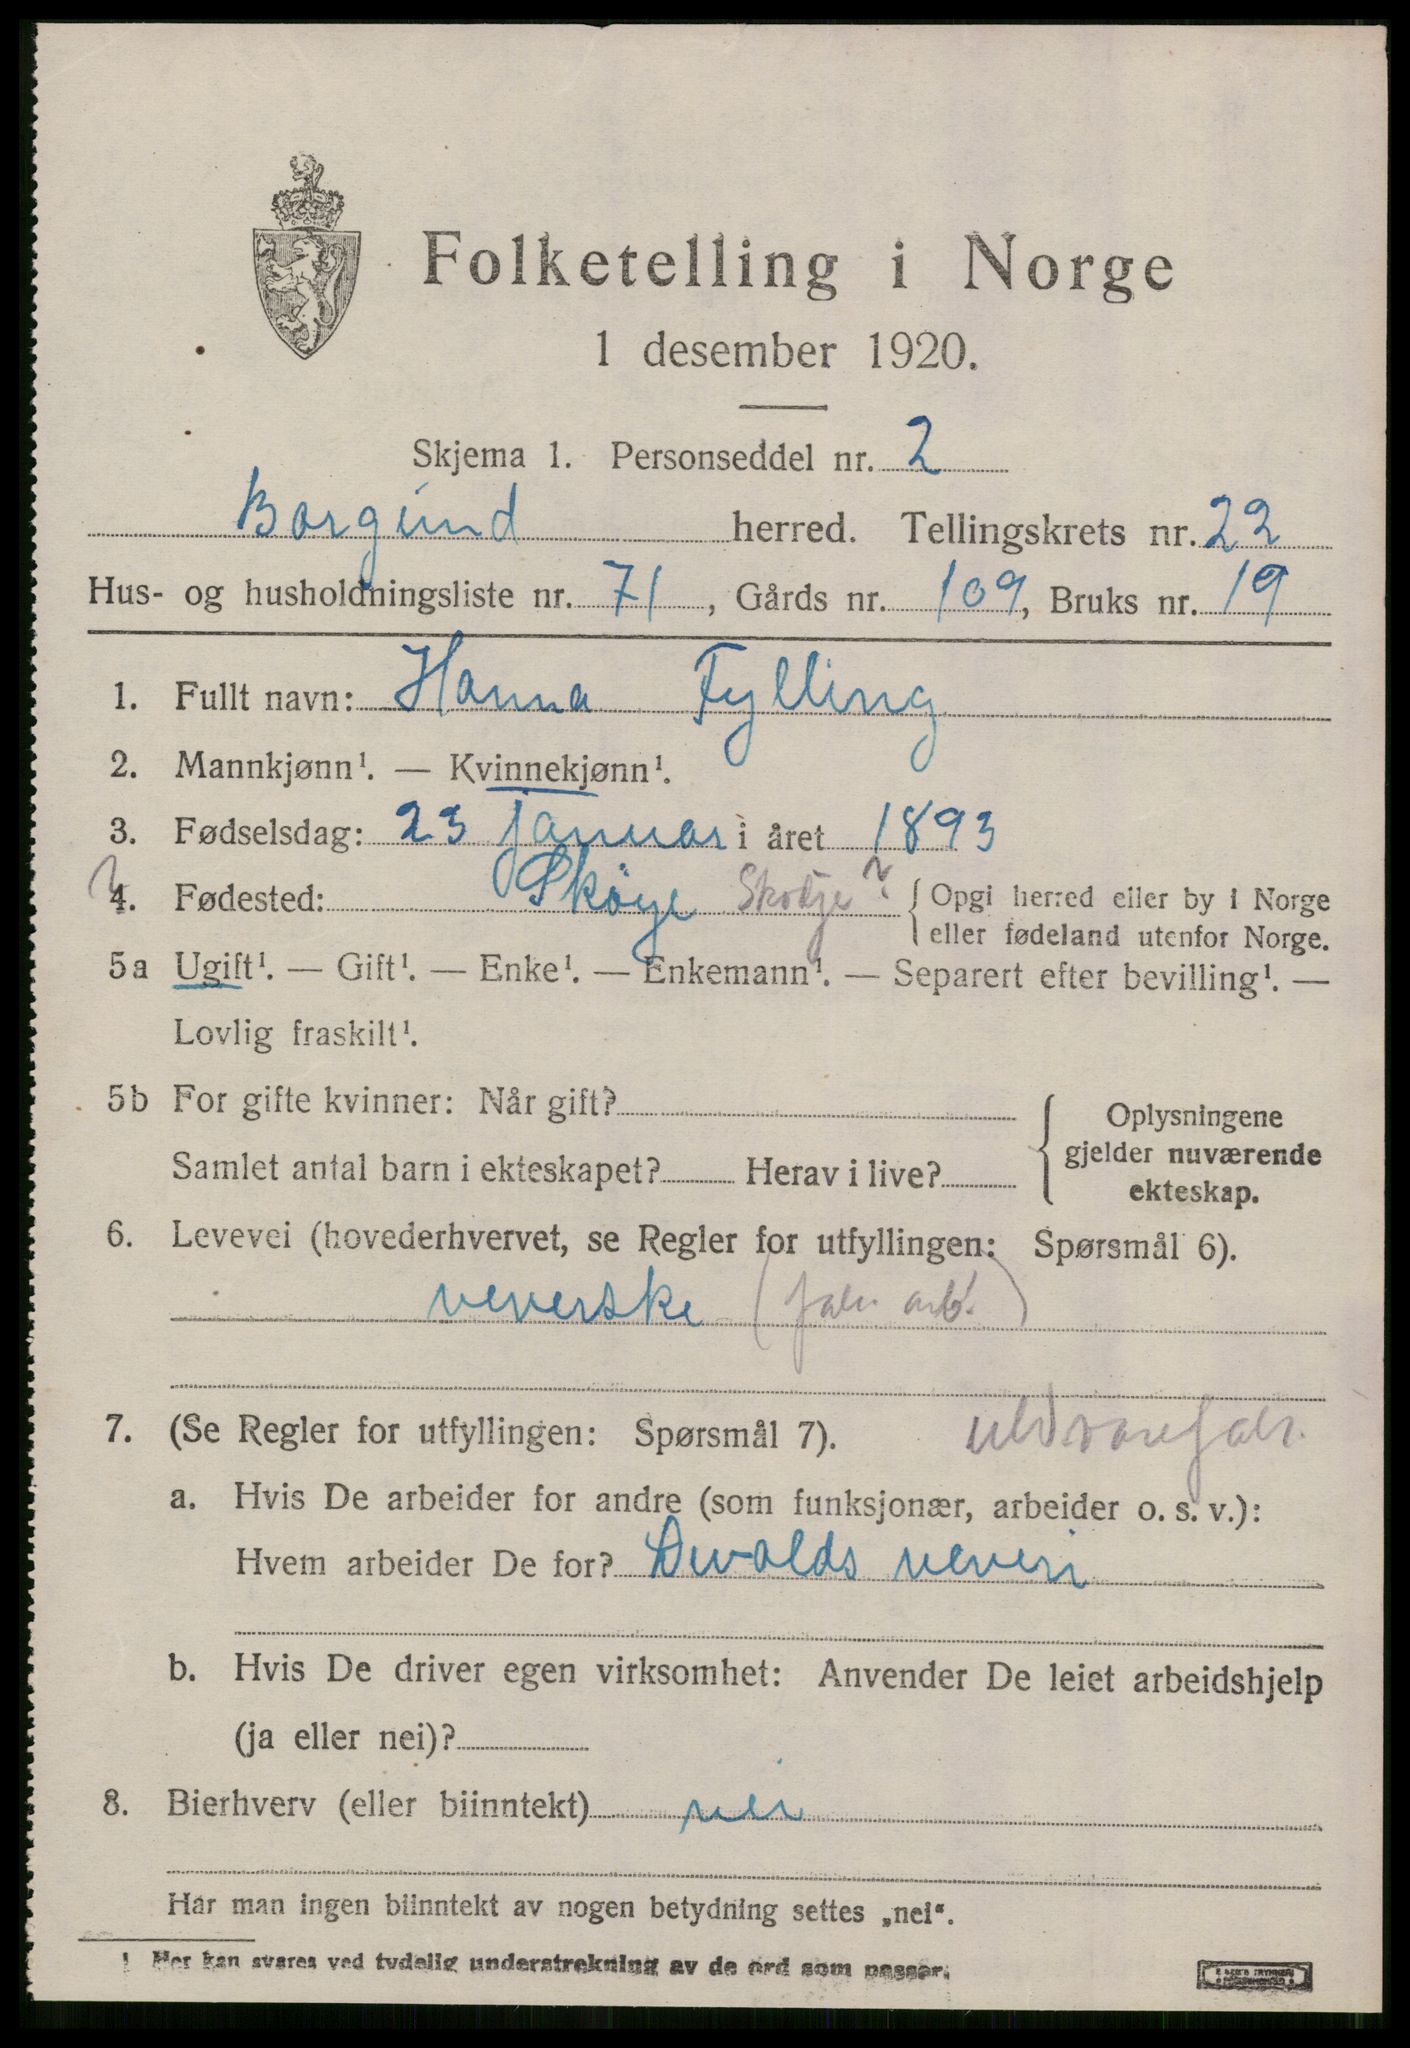 Folketelling i Norge
1 desember 1920.
Skjema 1. Personseddel nr. 2
Borgund herred. Tellingskrets nr. 22
Hus- og husholdningsliste nr. 71, Gårds nr. 109, Bruks nr. 19
1. Fullt navn: Hanna Fylling
2. Mannkjønn¹. — Kvinnekjønn¹.
3. Fødselsdag: 23 januar i året 1893
4. Fødested: Skøye Skodje? { Opgi herred eller by i Norge
eller fødeland utenfor Norge.
5a Ugift¹. — Gift¹. — Enke¹. — Enkemann¹. — Separert efter bevilling¹. —
Lovlig fraskilt¹.
5b For gifte kvinner: Når gift?
Samlet antal barn i ekteskapet? Herav i live?
Oplysningene
gjelder nuværende
ekteskap.
6. Levevei (hovederhvervet, se Regler for utfyllingen: Spørsmål 6).
veverske (fabr. arb.)
7. (Se Regler for utfyllingen: Spørsmål 7). uldvarefabr.
a. Hvis De arbeider for andre (som funksjonær, arbeider o. s. v.):
Hvem arbeider De for? Devolds veveri
b. Hvis De driver egen virksomhet: Anvender De leiet arbeidshjelp
(ja eller nei)?
8. Bierhverv (eller biinntekt) nei
Har man ingen biinntekt av nogen betydning settes „nei“.
1 Her kan svares ved tydelig understrekning av de ord som passer.